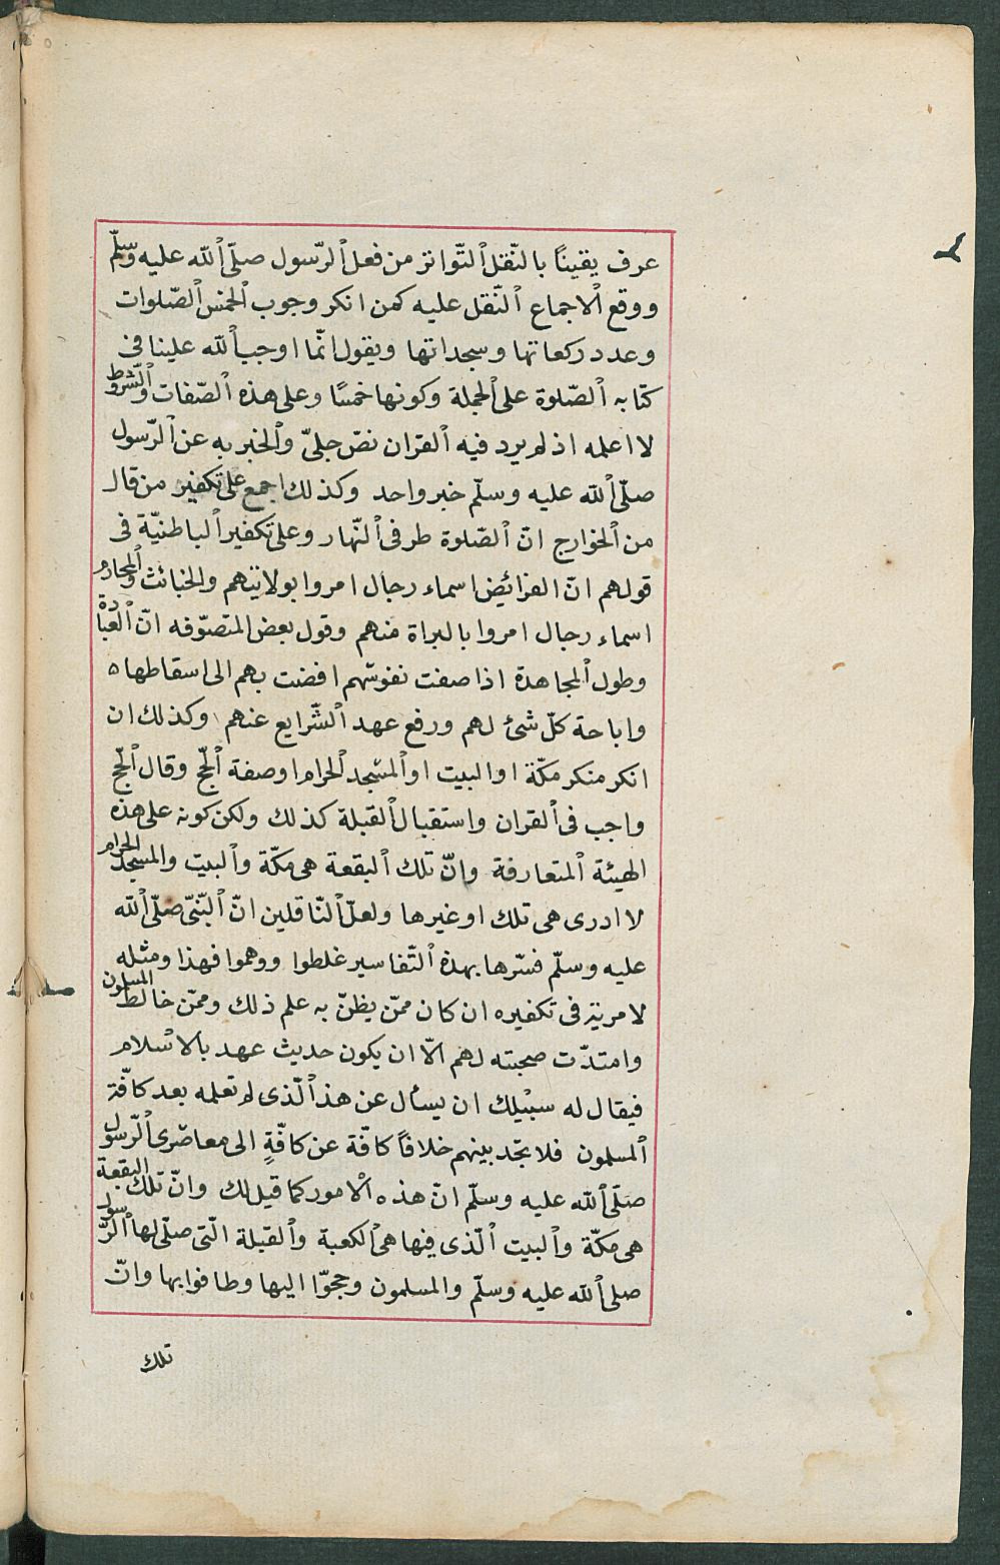 عرف يقينًا بالنّقل ٱلتّواتر من فعل ٱلرّسول صلّى ٱلله عليه وسلّم
ووقع ٱلاجماع ٱلنّقل عليه كمن انكر وجوب ٱلخمس ٱلصّلوات
وعدد ركعاتها وسجداتها ويقول انّما اوجب ٱلله علينا فى
كتابه ٱلصّلوة على ٱلجملة وكونها خمسًا وعلى هذه ٱلصّفات وٱلشّروط
لا اعلمه اذ لم يرد فيه ٱلقران نصّ جلىّ وٱلخبر به عن ٱلرّسول
صلّى ٱلله عليه وسلّم خبر واحد وكذلك اجمع على تكفير من قال
من ٱلخوارج انّ ٱلصّلوة طرفى ٱلنّهار وعلى تكفير ٱلباطنيّة فى
قولهم انّ الفرائض اسماء رجال امروا بولايتهم والخبائث وٱلمحارم
اسماء رجال امروا بالبراة منهم وقول بعض المتصوّفه انّ ٱلعبادة
وطول ٱلمجاهدة اذا صفت نفوسهم افضت بهم الى اسقاطها ٥
واباحة كلّ شئ لهم ورفع عهد ٱلشّرايع عنهم وكذلك ان
انكر منكر مكّة او البيت او ٱلمسجد ٱلحرام اوصفة ٱلحّج وقال ٱلحّج
واجب فى ٱلقران واستقبال ٱلقبلة كذلك ولكن كونه على هذه
الهيئة ٱلمتعارفة وانّ تلك ٱلبقعة هى مكّة وٱلبيت والمسجد الحرام
لا ادرى هى تلك او غيرها ولعلّ ٱلنّاقلين انّ ٱلنّبىّ صلّى ٱلله
عليه وسلّم فسّرها بهذه ٱلتّفاسير غلطوا ووهموا فهذا ومثله
لا مرية فى تكفيره ان كان ممّن يظنّ به علم ذلك وممّن خالط المسلمون
وامتدّت صحبته لهم الّا ان يكون حديث عهد بالاسلام
فيقال له سبيلك ان يسأل عن هذ ٱلّذى لم تعلمه بعد كافّة
ٱلمسلمون فلا تجد بينهم خلافًا كافّة عن كافّةٍ الى معاصرى ٱلرّسول
صلّى ٱلله عليه وسلّم انّ هذه ٱلامور كما قيل لك وانّ تلك البقعة
هى مكّة وٱلبيت ٱلّذى فيها هى ٱلكعبة وٱلقبلة الّتى صلّى لها ٱلرّسول
صلى ٱلله عليه وسلّم والمسلمون وحجوّا اليها وطافوا بها وانّ
تلك